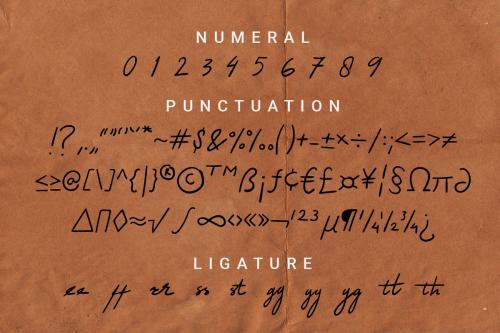 NUMERAL
0 1 2 3 4 5 6 7 8 9
PUNCTUATION
!?,„“”‘’"'*~#$&%‰()+-±×÷/:;<=>≠
≤≥@[\]^{|}®©™ß¡ƒ¢€£¤¥¦§Ωπ∂
∆∏◊≈√∫∞‹›«»¬¹²³µ¶¼½¾¿
LIGATURE
ea ff rr ss st gg yy yg tt th